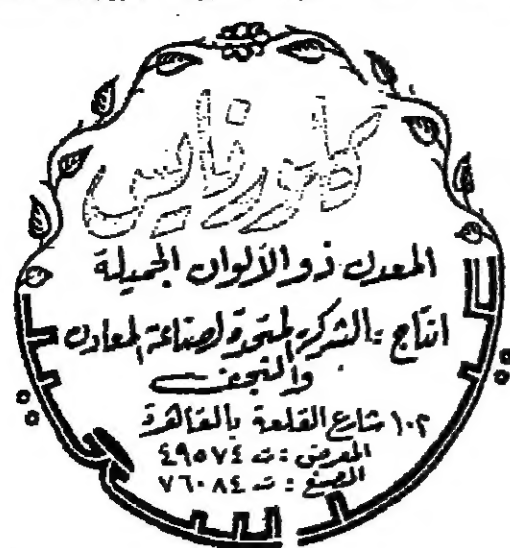 كورنايس
المعدن ذو الألوان الجميلة
انتاج : الشركه المتحدة لصناعة المعادن
والنجف
١٠٢ شارع القلعة بالقاهرة
المعرض : ت ٤٩٥٧٤
المصنع : ت ٧٦٠٨٤